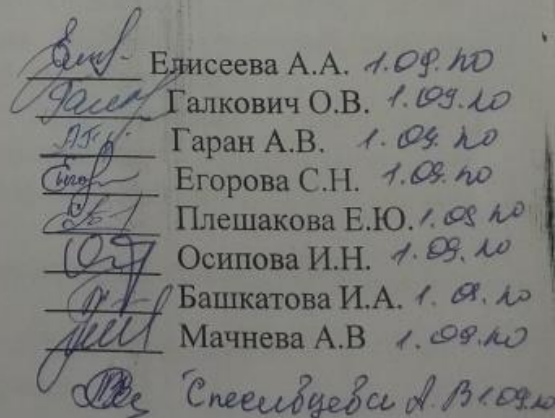 Елисеева А.А. 1.09.20
Галкович О.В. 1.09.20
Гаран А.В. 1.09.20
Егорова С.Н. 1.09.20
Плешакова Е.Ю. 1.09.20
Осипова И.Н. 1.09.20
Башкатова И.А. 1.09.20
Мачнева А.В 1.09.20
А. В 1.09.20